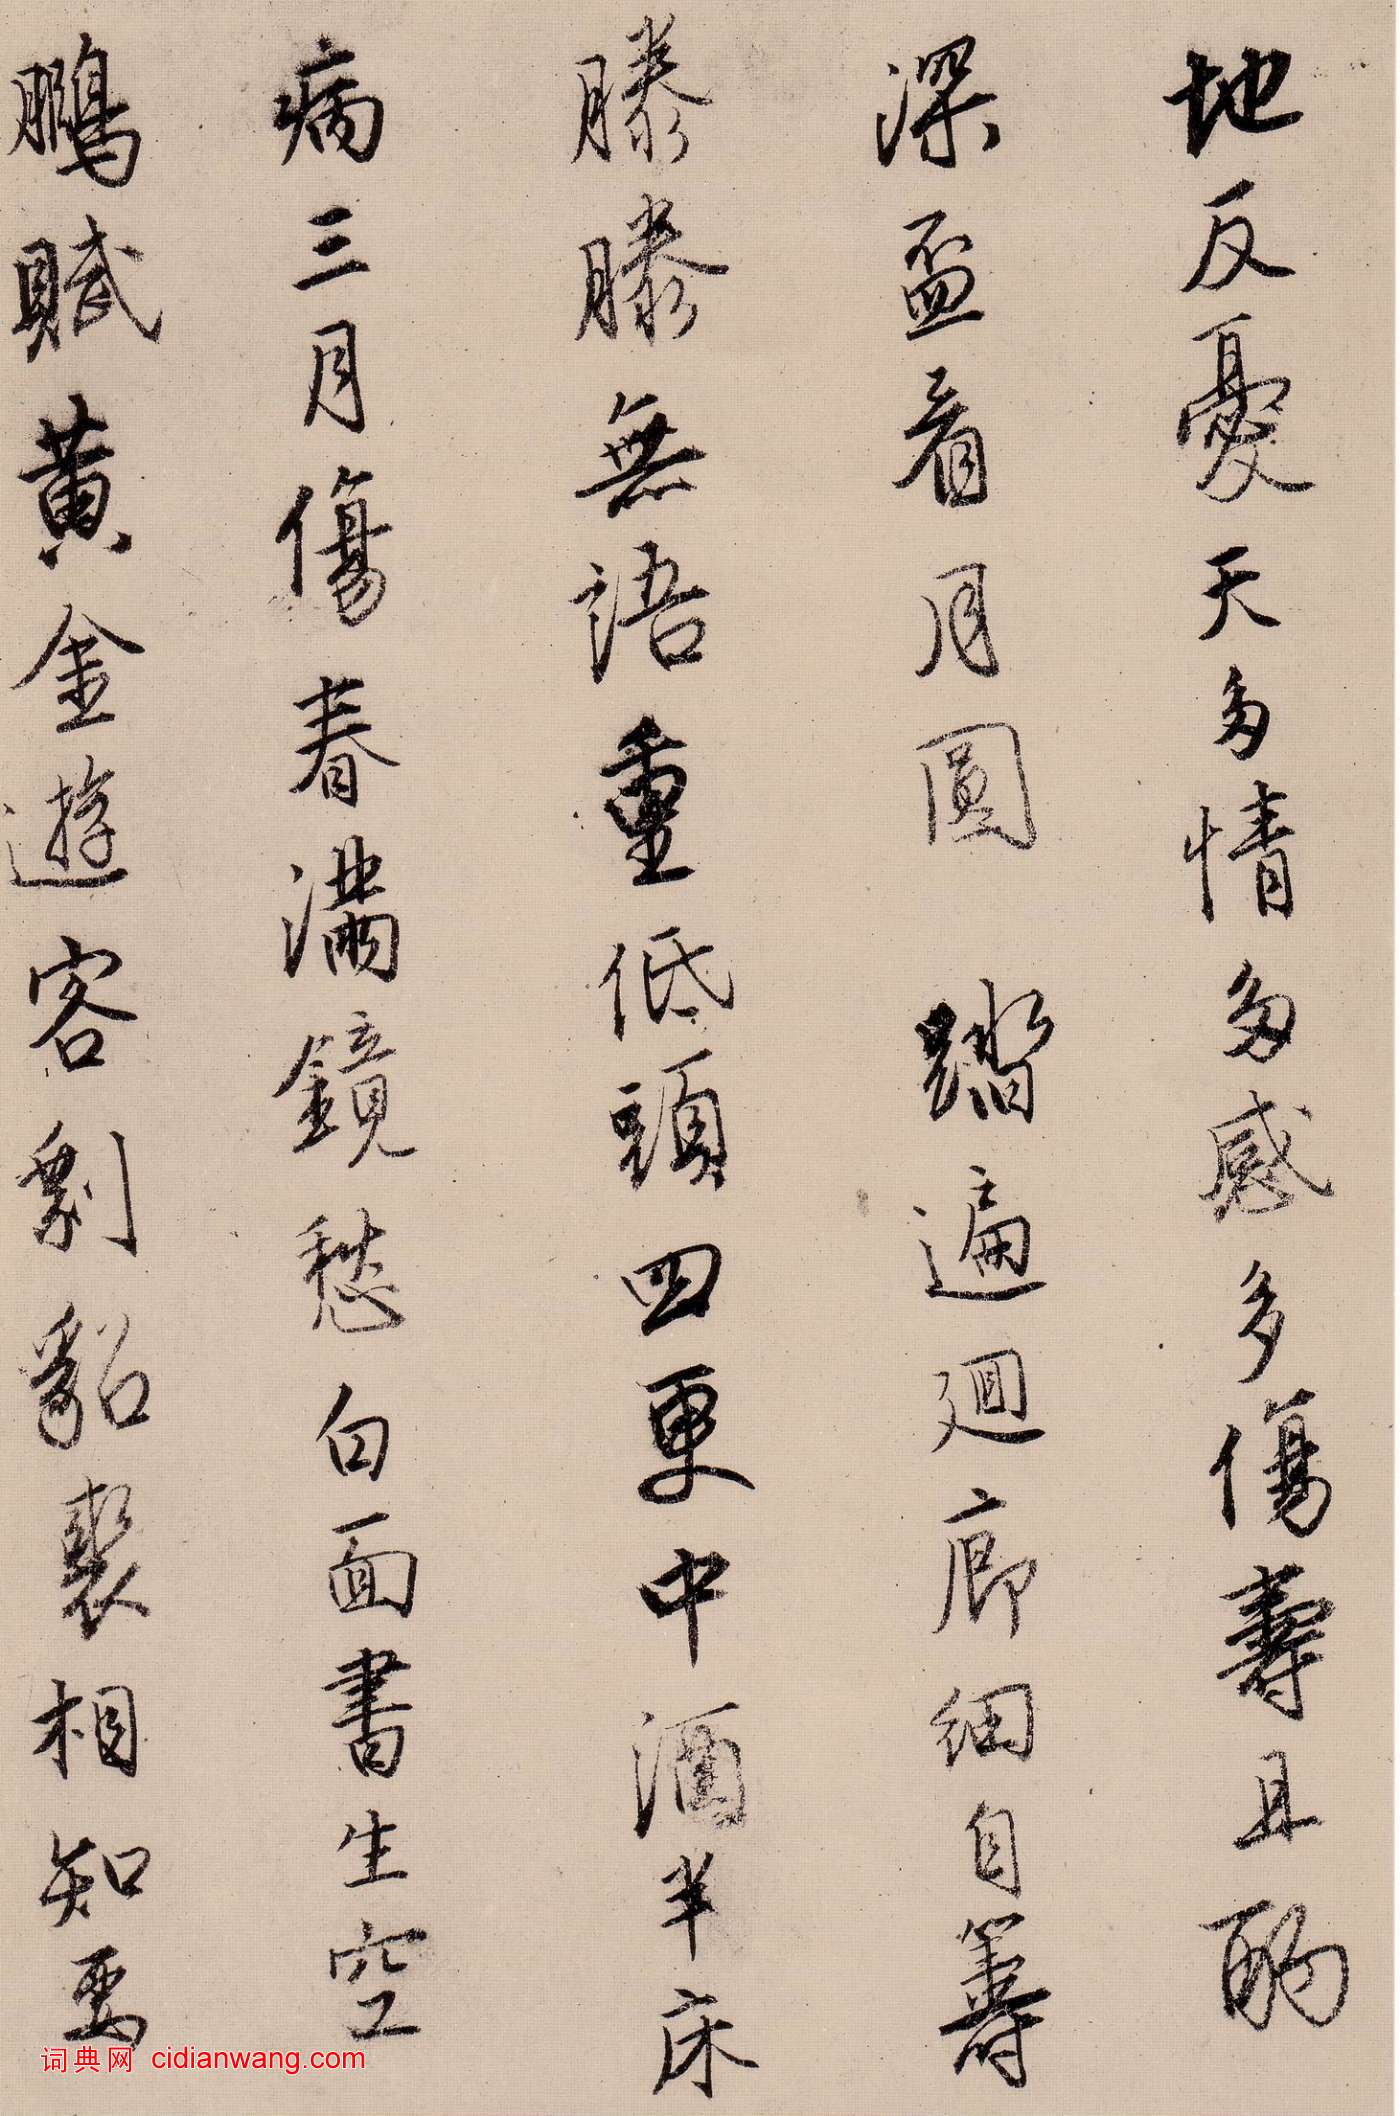 地反憂天多情多感多傷壽且酌
深盃看月圓　踏遍迴廊細自籌
滕滕無語重低頭四更中酒半床
病三月傷春滿鏡愁白面書生空
鵬賦黃金遊客剩貂裘相知要
词典网 cidianwang.com